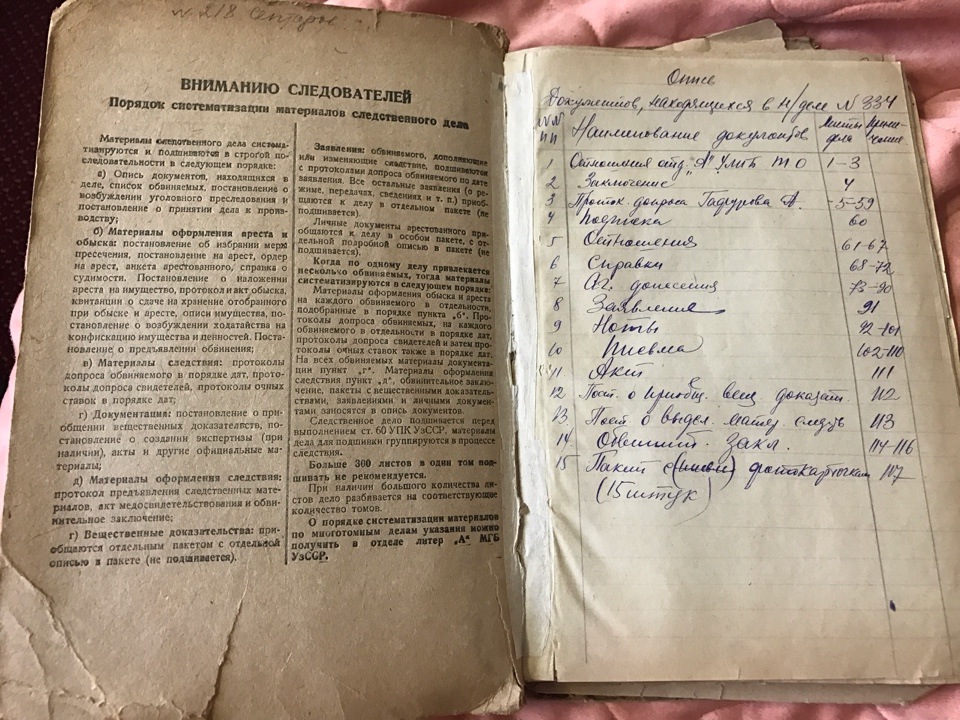 N 218
ВНИМАНИЮ СЛЕДОВАТЕЛЕЙ
Порядок систематизации материалов следственного дела
Материалы следственного дела систе-
матизируются и подшиваются в строгой по-
следовательности в следующем порядке:
а) Опись документов, находящихся в
деле, список обвиняемых, постановление о
возбуждении уголовного преследования и
постановление о принятии дела к произ-
водству;
б) Материалы оформления ареста и
обыска: постановление об избрании меры
пресечения, постановление на арест, ордер
на арест, анкета арестованного, справка о
судимости. Постановление о наложении
ареста на имущество, протокол и акт обыска,
квитанции о сдаче на хранение отобранного
при обыске и аресте, описи имущества, по-
становление о возбуждении ходатайства на
конфискацию имущества и ценностей. Поста-
новление о предъявлении обвинения;
в) Материалы следствия: протоколы
допроса обвиняемого в порядке дат, прото-
колы допроса свидетелей, протоколы очных
ставок в порядке дат;
г) Документация: постановление о при-
общении вещественных доказательств, по-
становление о создании экспертизы (при
наличии), акты и другие официальные ма-
териалы;
д) Материалы оформления следствия:
протокол предъявления следственных мате-
риалов, акт медосвидетельствования и обви-
нительное заключение;
г) Вещественные доказательства: при-
общаются отдельным пакетом с отдельной
описью в пакете (не подшивается).
Заявления: обвиняемого, дополняющие
или изменяющие следствие, подшиваются
с протоколами допроса обвиняемого по дате
заявления. Все остальные заявления (о ре-
жиме, передачах, сведениях и т. п.) приоб-
щаются к делу в отдельном пакете (не
подшивается).
Личные документы арестованного при-
общаются к делу в особом пакете, с от-
дельной подробной описью в пакете (не
подшивается).
Когда по одному делу привлекается
несколько обвиняемых, тогда материалы
систематизируются в следующем порядке:
Материалы оформления обыска и ареста
на каждого обвиняемого в отдельности,
подобранные в порядке пункта „б". Про-
токолы допроса обвиняемых, на каждого
обвиняемого в отдельности в порядке дат,
протоколы допроса свидетелей и затем про-
токолы очных ставок также в порядке дат.
На всех обвиняемых материалы документа-
ции пункт „г". Материалы оформления
следствия пункт „д", обвинительное заклю-
чение, пакеты с вещественными доказатель-
ствами, заявлениями и личными докумен-
тами заносятся в опись документов.
Следственное дело подшивается перед
выполнением ст. 60 УПК УзССР, материалы
дела для подшивки группируются в процессе
следствия.
Больше 300 листов в один том под-
шивать не рекомендуется.
При наличии большого количества ли-
стов дело разбивается на соответствующее
количество томов.
О порядке систематизации материалов
по многотомным делам указания можно
получить в отделе литер „А" МГБ
УзССР.
Опись
Документов, находящихся в н/деле N 334
NN пп Наименование документов Листы дела Приме-чание
1 Отношения отд. „А" УМГБ ТО 1-3
2 Заключение 4
3 Проток. допроса Гафурова А. 5-59
4 Подписка 60
5 Отношения 61-67
6 Справки 68-72
7 Аг. донесения 73-90
8 Заявления 91
9 Ноты 92-101
10 Письма 102-110
11 Акт 111
12 Пост. о приобщ. вещ. доказат 112
13 Пост. о выдел. матер. следств 113
14 Обвинит. закл. 114-116
15 Пакет с фотокарточками 117
(15 штук)